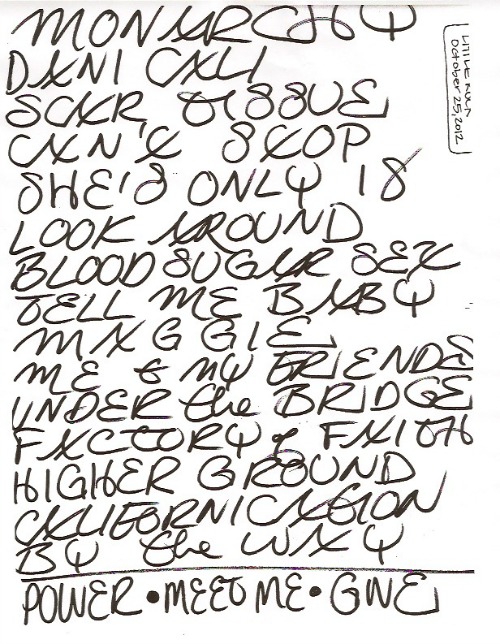 MONARCHY
DANI CALI
SCAR TISSUE
CAN'T STOP
SHE'S ONLY 18
LOOK AROUND
BLOOD SUGAR SEX
TELL ME BABY
MAGGIE
ME & MY FRIENDS
UNDER the BRIDGE
FACTORY of FAITH
HIGHER GROUND
CALIFORNICATION
BY the WAY
POWER • MEET ME • GIVE
LITTLE ROCK
October 25, 2012